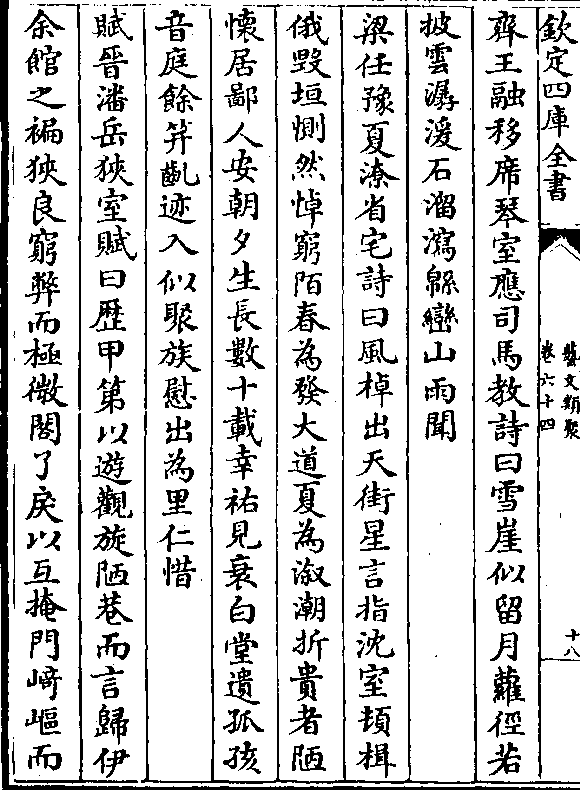 欽定四庫全書
藝文類聚
卷六十四
十八
齊王融移席琴室應司馬教詩曰雪崖似留月蘿徑若
披雲潺湲石溜瀉緜蠻山雨聞
梁任豫夏潦省宅詩曰風棹出天街星言指沈室頓楫
俄毀垣惻然悼窮陌春為發大道夏為溆潮折貴者陋
懷居鄙人安朝夕生長數十載幸祐見衰白堂遺孤孩
音庭餘笄齓迹入似聚族慰出為里仁惜
賦晉潘岳狹室賦曰歴甲第以遊觀旋陋巷而言歸伊
余館之褊狹良窮弊而極微閣了戾以互掩門﨑嶇而